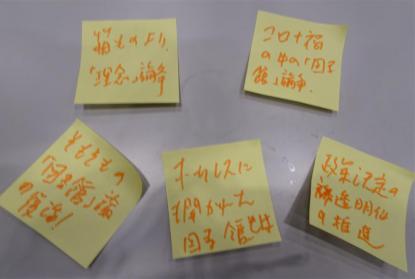 箱ものより!
「理念」論争
コロナ禍
の中の「図書
館」論争.
そもそもの
「図書館」論
の復活!
ホームレスに
開かれた
図書館とは
政策決定の
透明化
の推進